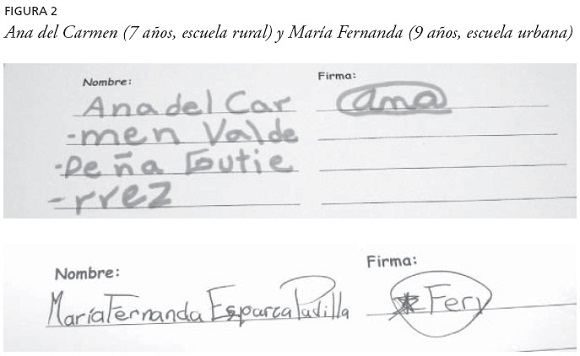 FIGURA 2
Ana del Carmen (7 años, escuela rural) y María Fernanda (9 años, escuela urbana)
Nombre: Firma:
Ana del Car ana
-men Valde
-Peña Gutie
-rrez
Nombre: Firma:
María Fernanda Esparca Padilla Fery